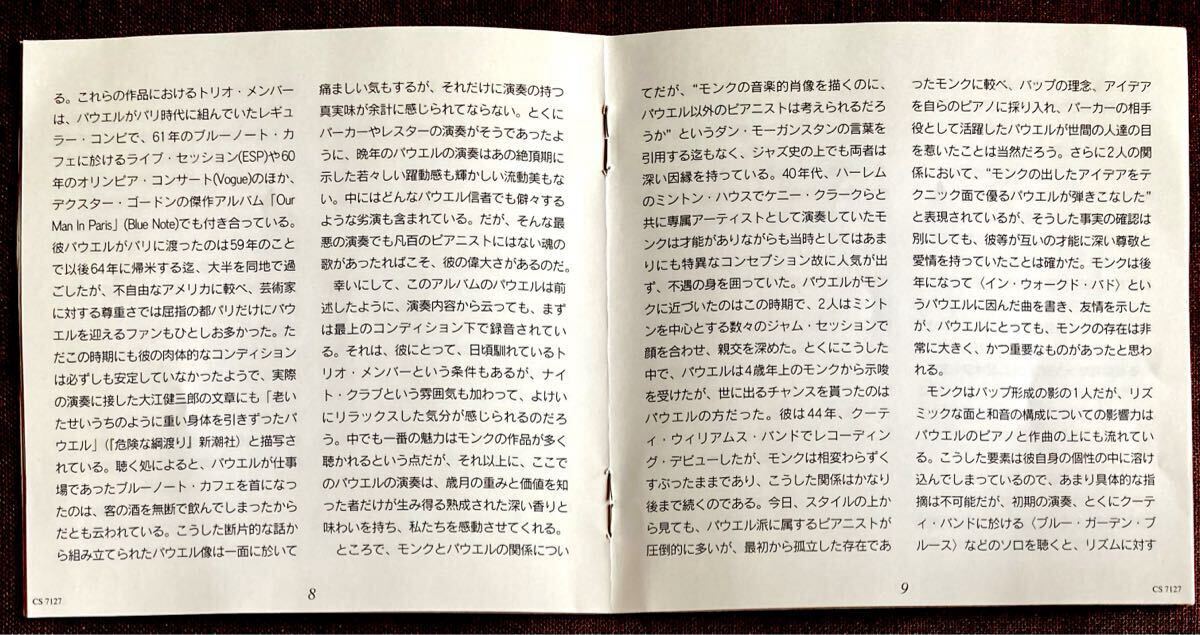 る。これらの作品におけるトリオ・メンバー
は、パウエルがパリ時代に組んでいたレギュ
ラー・コンビで、61年のブルーノート・カ
フェに於けるライブ・セッション(ESP)や60
年のオリンピア・コンサート(Vogue)のほか、
デクスター・ゴードンの傑作アルバム「Our
Man In Paris」(Blue Note)でも付き合っている。
彼パウエルがパリに渡ったのは59年のこと
で以後64年に帰米する迄、大半を同地で過
ごしたが、不自由なアメリカに較べ、芸術家
に対する尊重さでは屈指の都パリだけにパウ
エルを迎えるファンもひとしお多かった。た
だこの時期にも彼の肉体的なコンディション
は必ずしも安定していなかったようで、実際
の演奏に接した大江健三郎の文章にも「老い
たせいうちのように重い身体を引きずったパ
ウエル」(「危険な綱渡り』新潮社)と描写さ
れている。聴く処によると、パウエルが仕事
場であったブルーノート・カフェを首になっ
たのは、客の酒を無断で飲んでしまったから
だとも云われている。こうした断片的な話か
ら組み立てられたパウエル像は一面に於いて
痛ましい気もするが、それだけに演奏の持つ
真実味が余計に感じられてならない。とくに
パーカーやレスターの演奏がそうであったよ
うに、晩年のパウエルの演奏はあの絶頂期に
示した若々しい躍動感も輝かしい流動美もな
い。中にはどんなパウエル信者でも僻々する
ような劣演も含まれている。だが、そんな最
悪の演奏でも凡百のピアニストにはない魂の
歌があったればこそ、彼の偉大さがあるのだ。
幸いにして、このアルバムのパウエルは前
述したように、演奏内容から云っても、まず
は最上のコンディション下で録音されてい
る。それは、彼にとって、日頃馴れているト
リオ・メンバーという条件もあるが、ナイ
ト・クラブという雰囲気も加わって、よけい
にリラックスした気分が感じられるのだろ
う。中でも一番の魅力はモンクの作品が多く
聴かれるという点だが、それ以上に、ここで
のパウエルの演奏は、歳月の重みと価値を知
った者だけが生み得る熟成された深い香りと
味わいを持ち、私たちを感動させてくれる。
ところで、モンクとパウエルの関係につい
CS 7127
8
てだが、“モンクの音楽的肖像を描くのに、
パウエル以外のピアニストは考えられるだろ
うか”というダン・モーガンスタンの言葉を
引用する迄もなく、ジャズ史の上でも両者は
深い因縁を持っている。40年代、ハーレム
のミントン・ハウスでケニー・クラークらと
共に専属アーティストとして演奏していたモ
ンクは才能がありながらも当時としてはあま
りにも特異なコンセプション故に人気が出
ず、不遇の身を囲っていた。パウエルがモン
クに近づいたのはこの時期で、2人はミント
ンを中心とする数々のジャム・セッションで
顔を合わせ、親交を深めた。とくにこうした
中で、パウエルは4歳年上のモンクから示唆
を受けたが、世に出るチャンスを貰ったのは
パウエルの方だった。彼は44年、クーテ
ィ・ウィリアムス・バンドでレコーディン
グ・デビューしたが、モンクは相変わらずく
すぶったままであり、こうした関係はかなり
後まで続くのである。今日、スタイルの上か
ら見ても、パウエル派に属するピアニストが
圧倒的に多いが、最初から孤立した存在であ
ったモンクに較べ、バップの理念、アイデア
を自らのピアノに採り入れ、パーカーの相手
役として活躍したパウエルが世間の人達の目
を惹いたことは当然だろう。さらに2人の関
係において、“モンクの出したアイデアをテ
クニック面で優るパウエルが弾きこなした”
と表現されているが、そうした事実の確認は
別にしても、彼等が互いの才能に深い尊敬と
愛情を持っていたことは確かだ。モンクは後
年になって〈イン・ウォークド・バド〉とい
うパウエルに因んだ曲を書き、友情を示した
が、パウエルにとっても、モンクの存在は非
常に大きく、かつ重要なものがあったと思わ
れる。
モンクはバップ形成の影の1人だが、リズ
ミックな面と和音の構成についての影響力は
パウエルのピアノと作曲の上にも流れてい
る。こうした要素は彼自身の個性の中に溶け
込んでしまっているので、あまり具体的な指
摘は不可能だが、初期の演奏、とくにクーテ
ィ・バンドに於ける〈ブルー・ガーデン・ブ
ルース〉などのソロを聴くと、リズムに対す
9
CS 7127